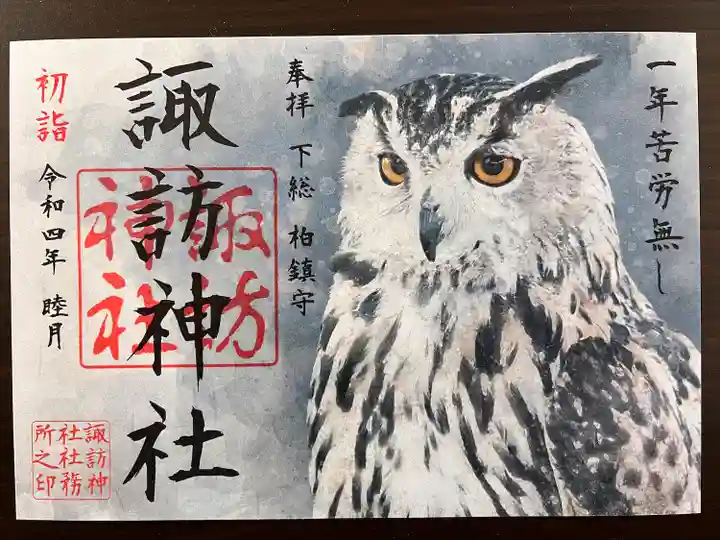 一年苦労無し
奉拝 下総 柏鎮守
諏訪神社
諏訪
神社
初詣
令和四年 睦月
諏訪神
社社務
所之印